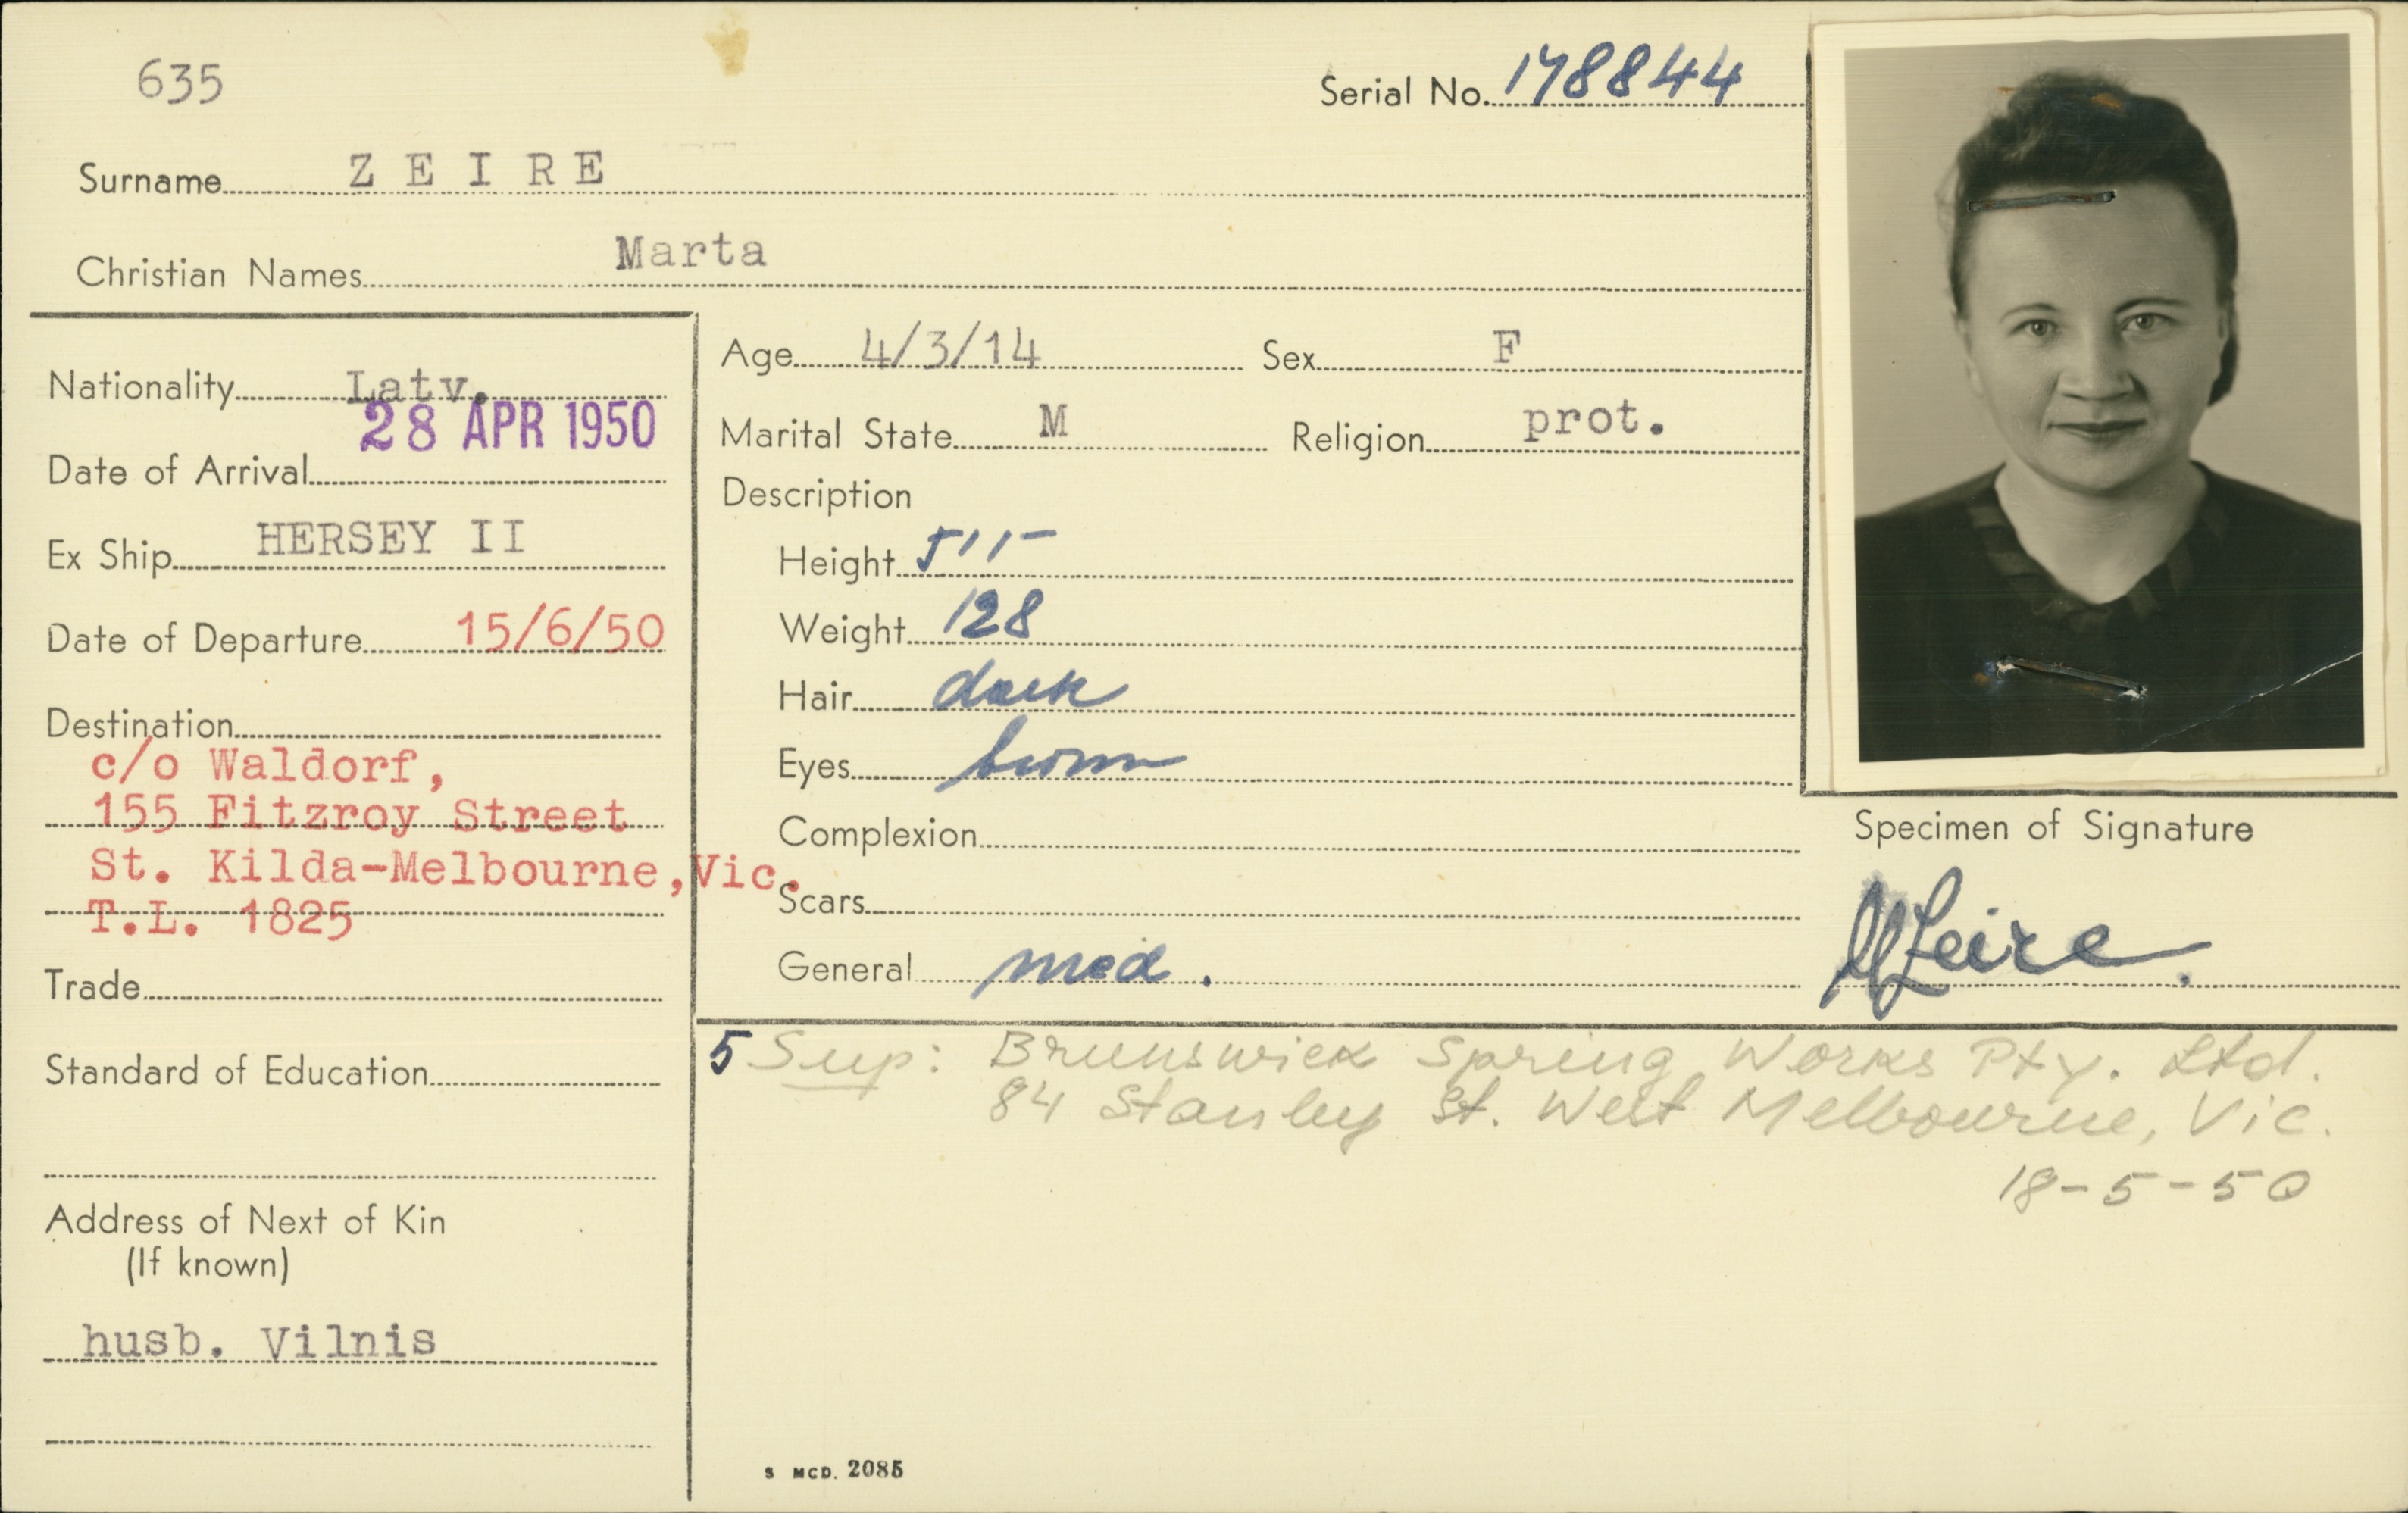 635
Serial No. 178844
Surname Z E I R E
Christian Names Marta
Nationality Latv.
Date of Arrival 28 APR 1950
Ex Ship HERSEY II
Date of Departure 15/6/50
Destination
c/o Waldorf,
155 Fitzroy Street
St. Kilda-Melbourne,Vic.
T.L. 1825
Trade
Standard of Education
Address of Next of Kin
(If known)
husb. Vilnis
Age 4/3/14 Sex F
Marital State M Religion prot.
Description
Height
Weight 128
Hair dark
Eyes brown
Complexion
Scars
General med.
Specimen of Signature
MZeire.
5 Sup: Brunswick Spring Works Pty. Ltd.
84 Stanley St. West Melbourne, Vic.
18-5-50
S MCD. 2085